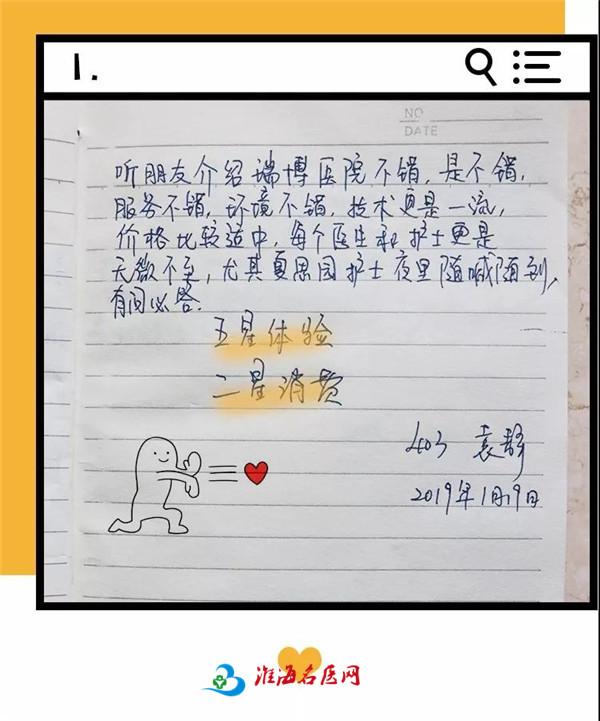 1.
NO
DATE
听朋友介绍瑞博医院不错,是不错,
服务不错,环境不错,技术更是一流,
价格比较适中,每个医生和护士更是
无微不至,尤其夏思园护士夜里随喊随到,
有问必答.
五星体验
二星消费
403 袁静
2019年1月19日
淮海名医网